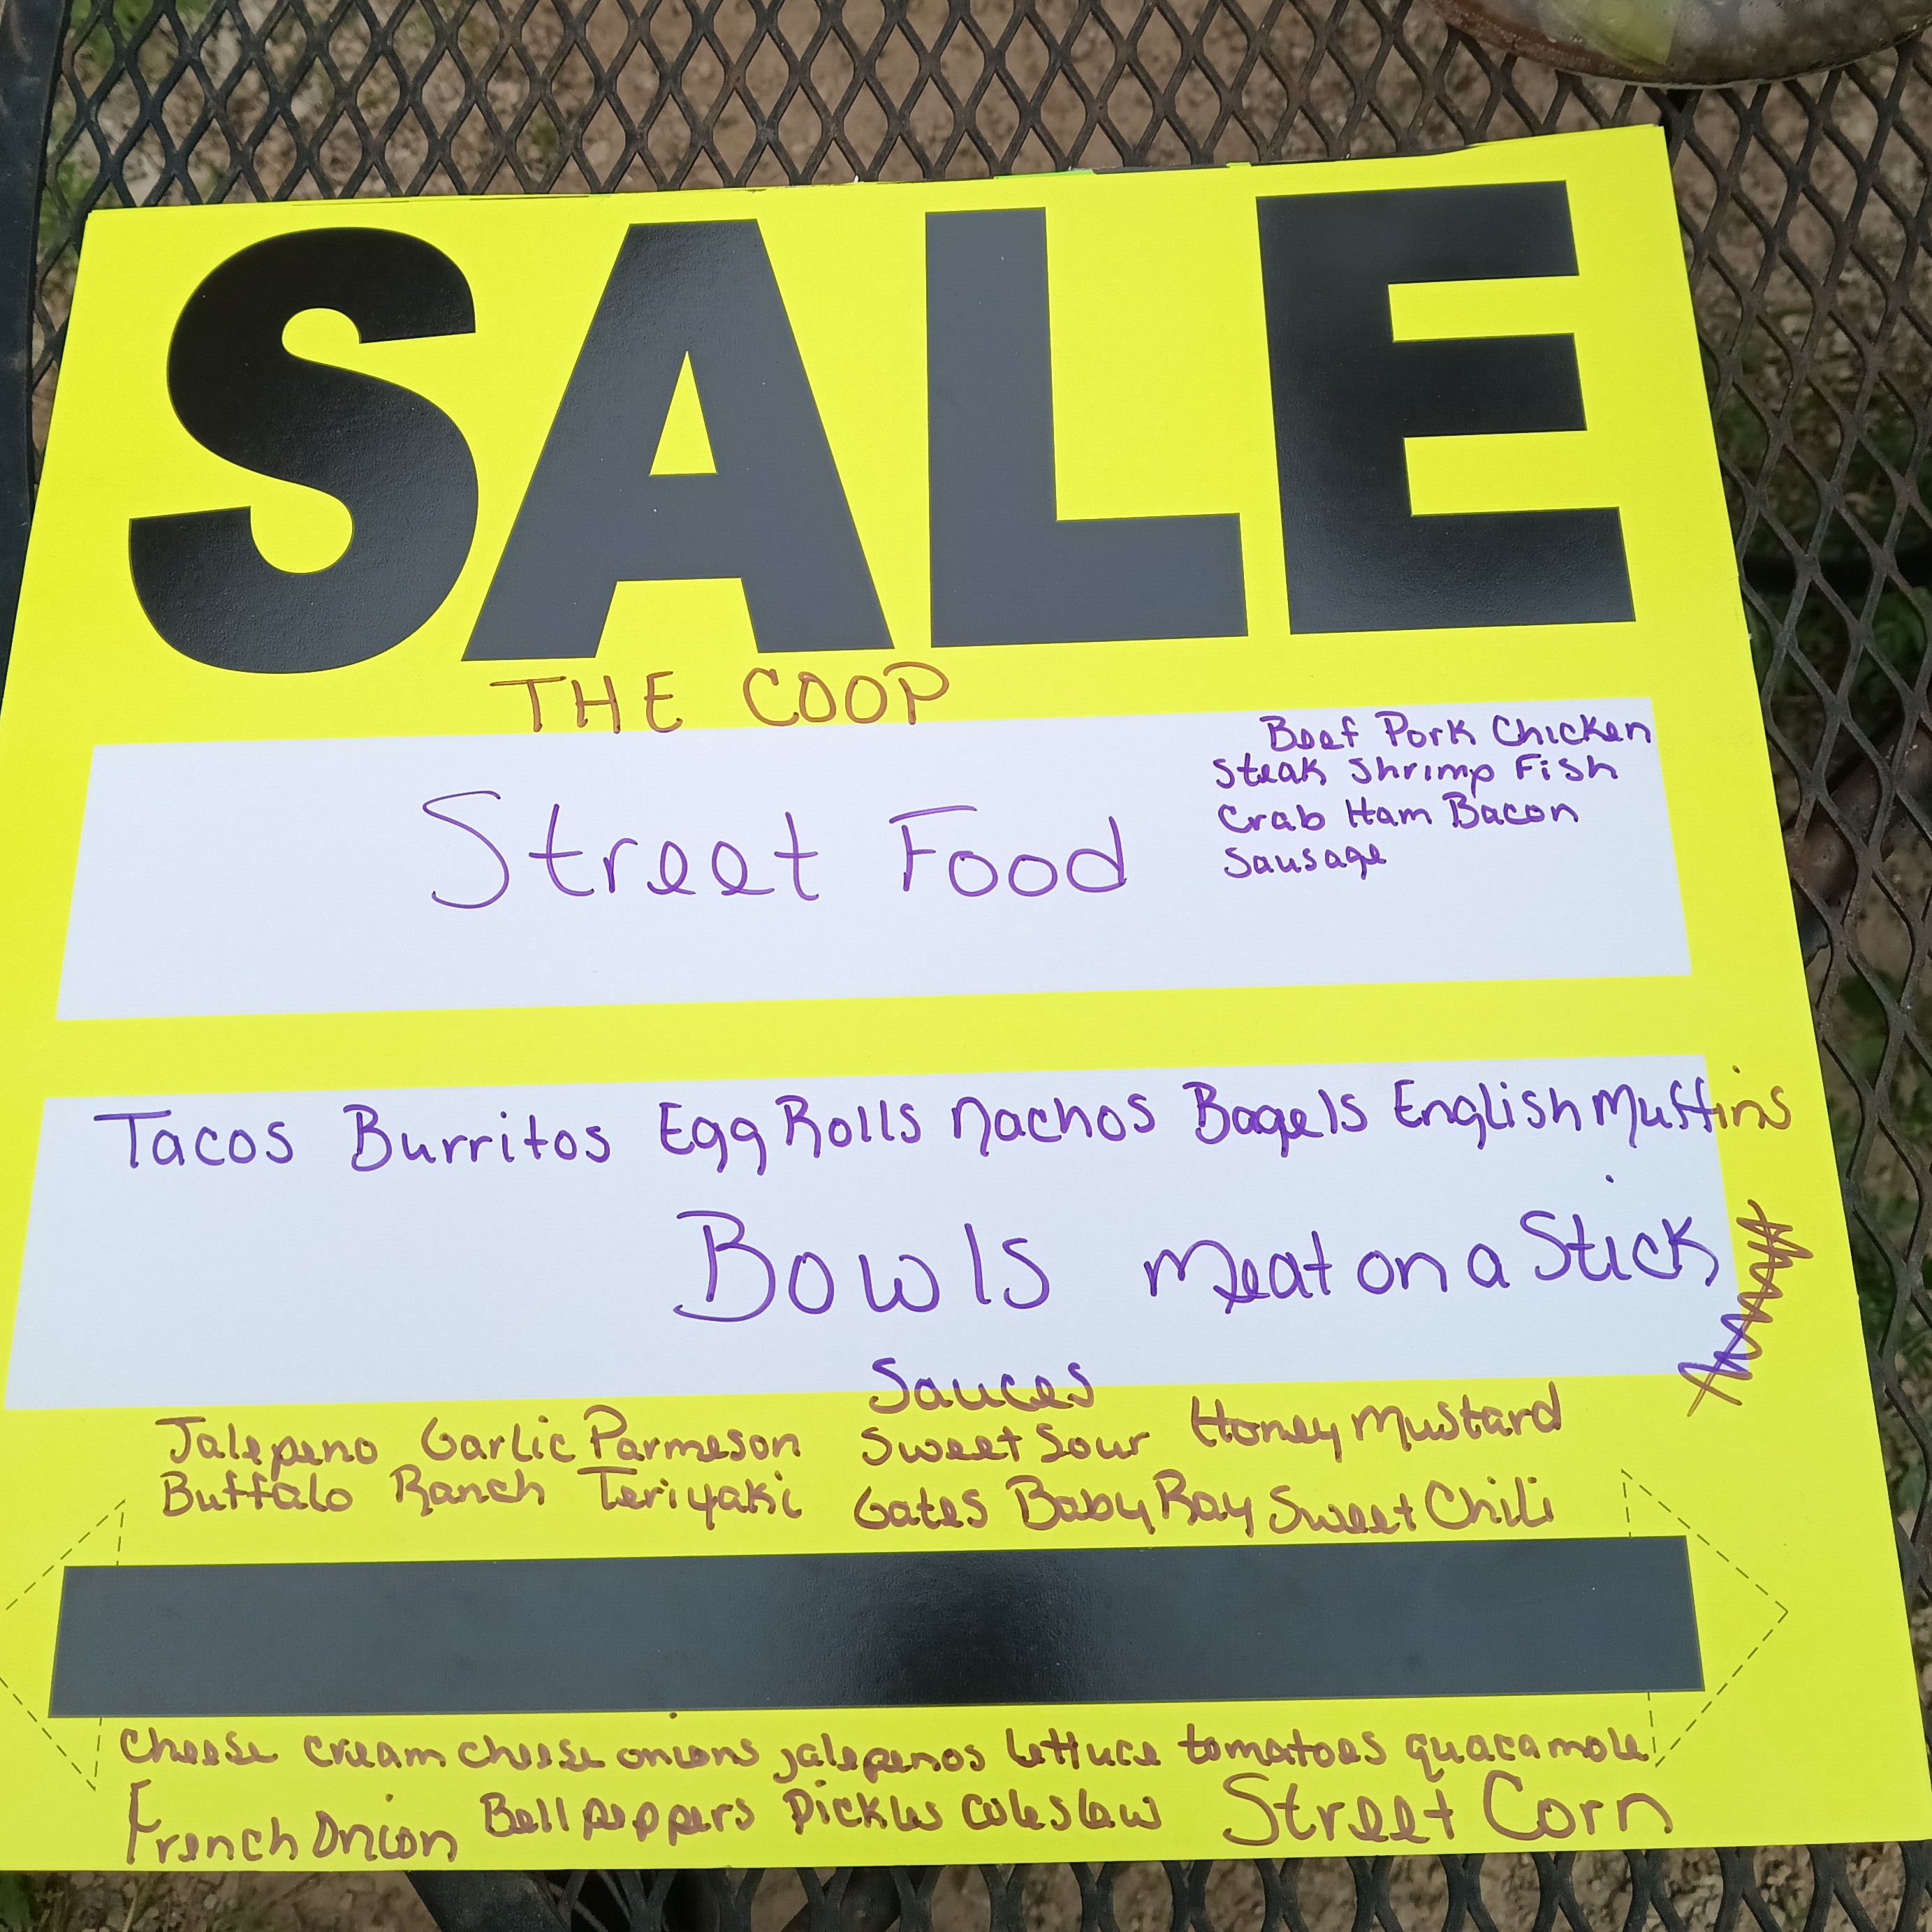 SALE
THE COOP
Street Food
Beef Pork Chicken
Steak Shrimp Fish
Crab Ham Bacon
Sausage
Tacos Burritos Egg Rolls Nachos Bagels English Muffins
Bowls Meat on a Stick
Sauces
Jalepeno Garlic Parmeson Sweet Sour Honey Mustard
Buffalo Ranch Teriyaki Gates Baby Ray Sweet Chili
Cheese cream cheese onions jalepenos lettuce tomatoes guacamole
French Onion Bell peppers Pickles Coleslaw Street Corn